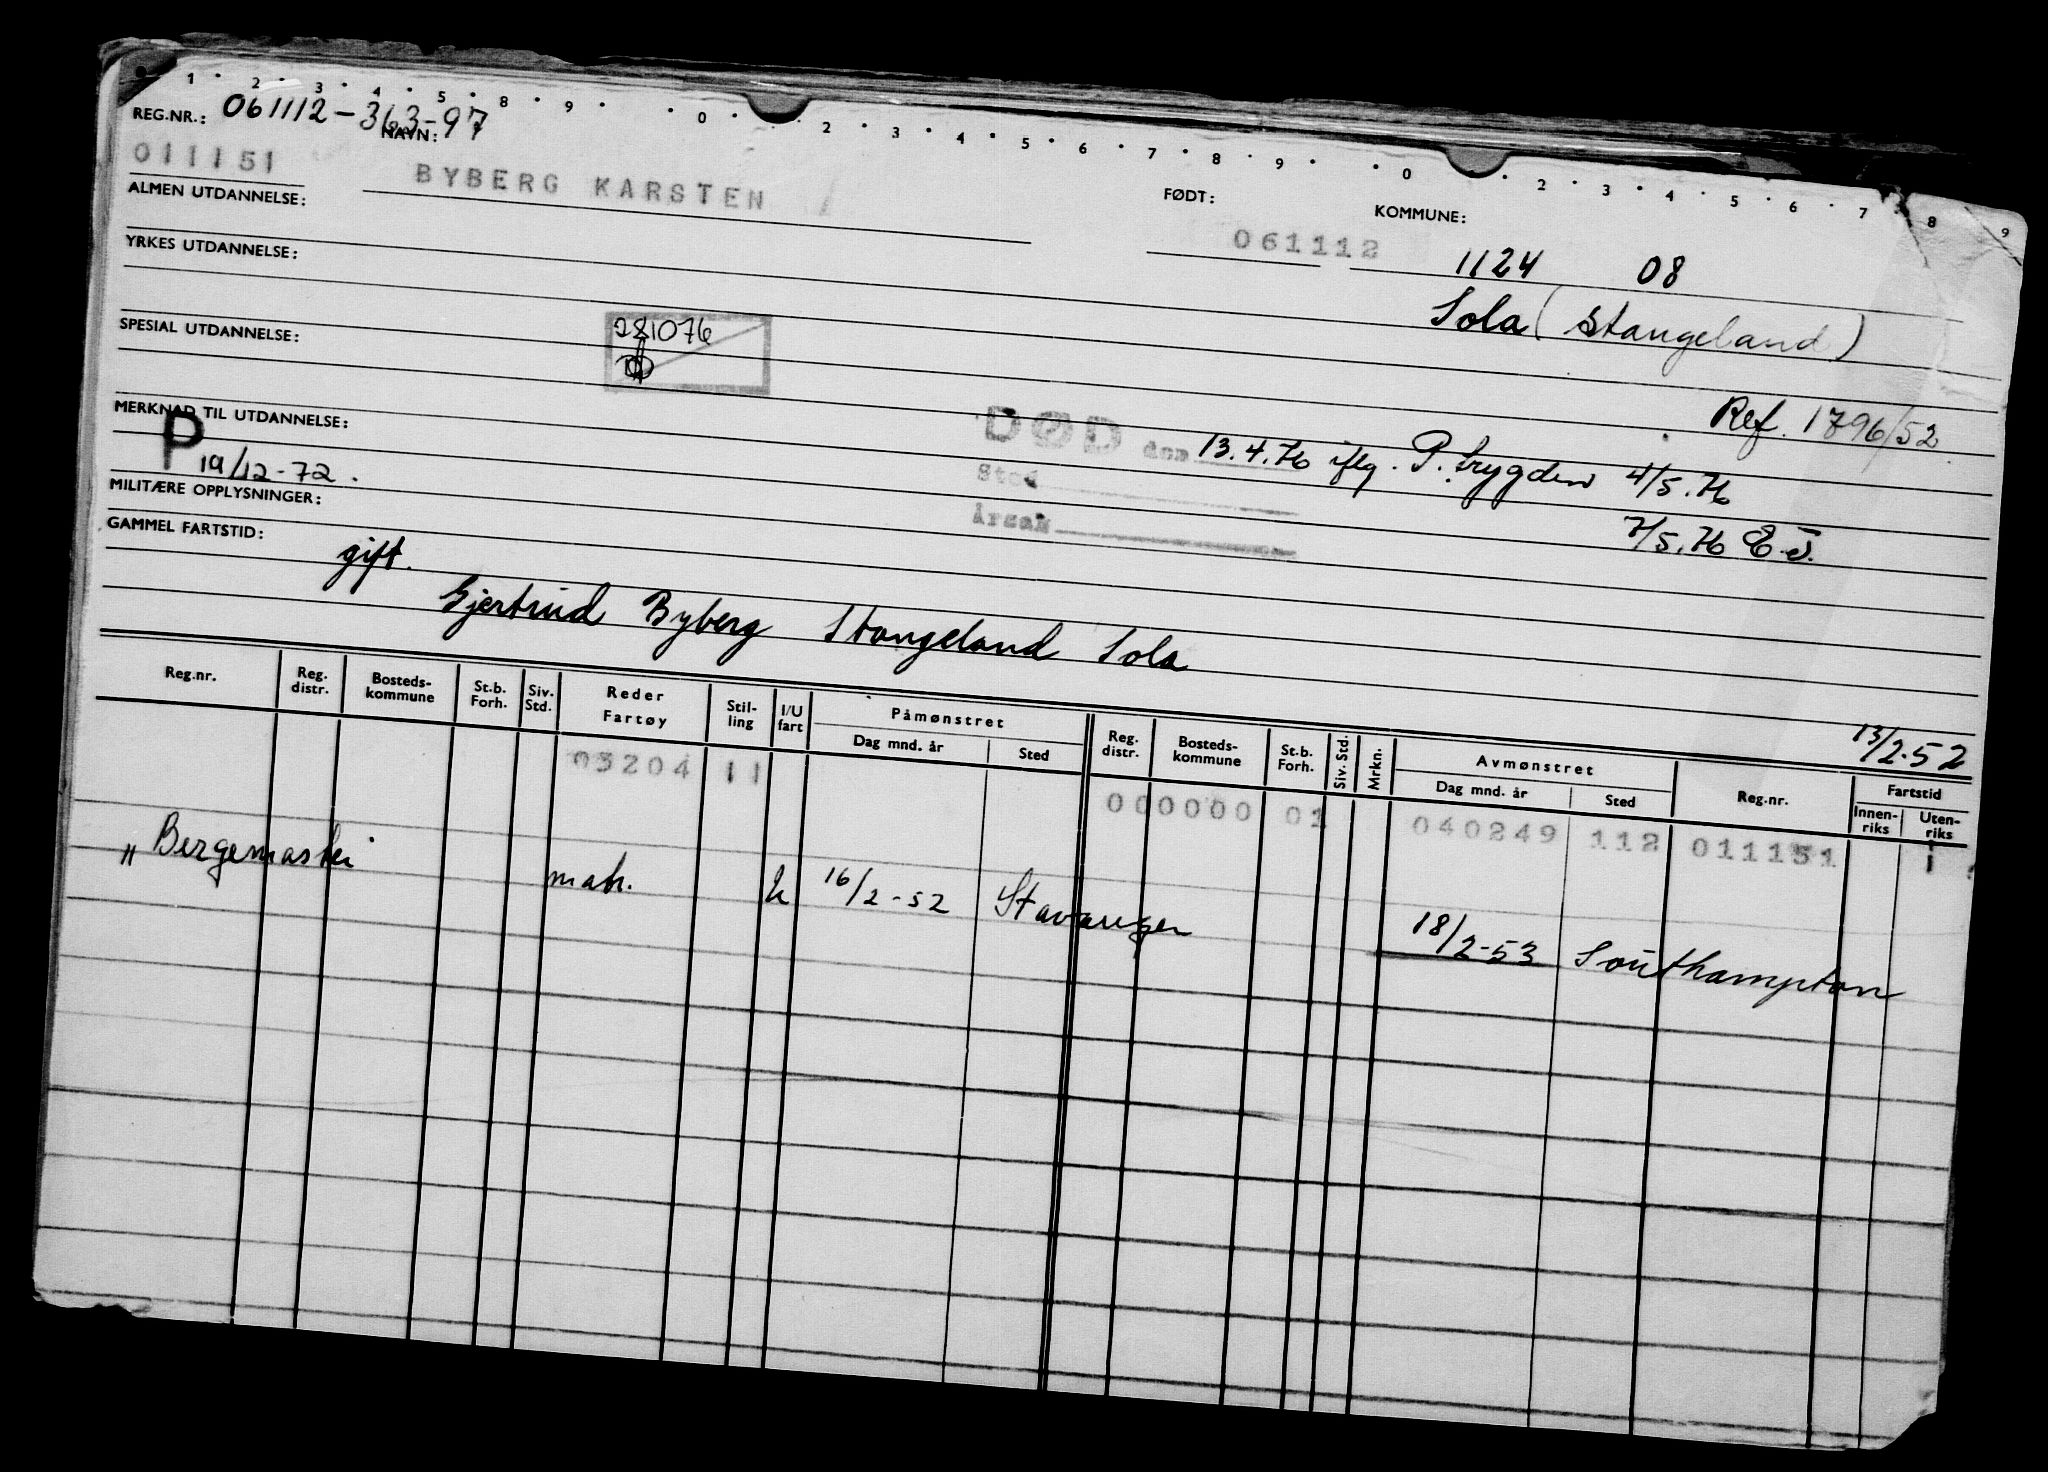 1 2 3 4 5 8 9 0 2 3 4 5 6 7 8 9 0 2 3 4 5 6 7 8 9
REG.NR.: 061112-363-97 NAVN:
011151 BYBERG KARSTEN FØDT: KOMMUNE:
ALMEN UTDANNELSE: 061112 1124 08
YRKES UTDANNELSE: Sola (Stangeland)
SPESIAL UTDANNELSE: 281076
Ref. 1796/52
MERKNAD TIL UTDANNELSE: DØD den 13.4.76 iflg. P.trygden 4/5.76
P 19/12-72. Sted
MILITÆRE OPPLYSNINGER: Årsak 7/5.76 E.J.
GAMMEL FARTSTID: gift.
Gjertrud Byberg Stangeland Sola
13/2.52
Reg.nr. Reg. distr. Bosteds-kommune St.b. Forh. Siv. Std. Reder Fartøy Stil-ling I/U fart Påmønstret Dag mnd. år Sted Reg. distr. Bosteds-kommune St.b. Forh. Siv. Std. Mrkn. Avmønstret Dag mnd. år Sted Reg.nr. Fartstid Innen-riks Uten-riks
03204 11 000000 01 040249 112 011151 1
" matr. u 16/2-52 Stavanger 18/2-53 Southampton